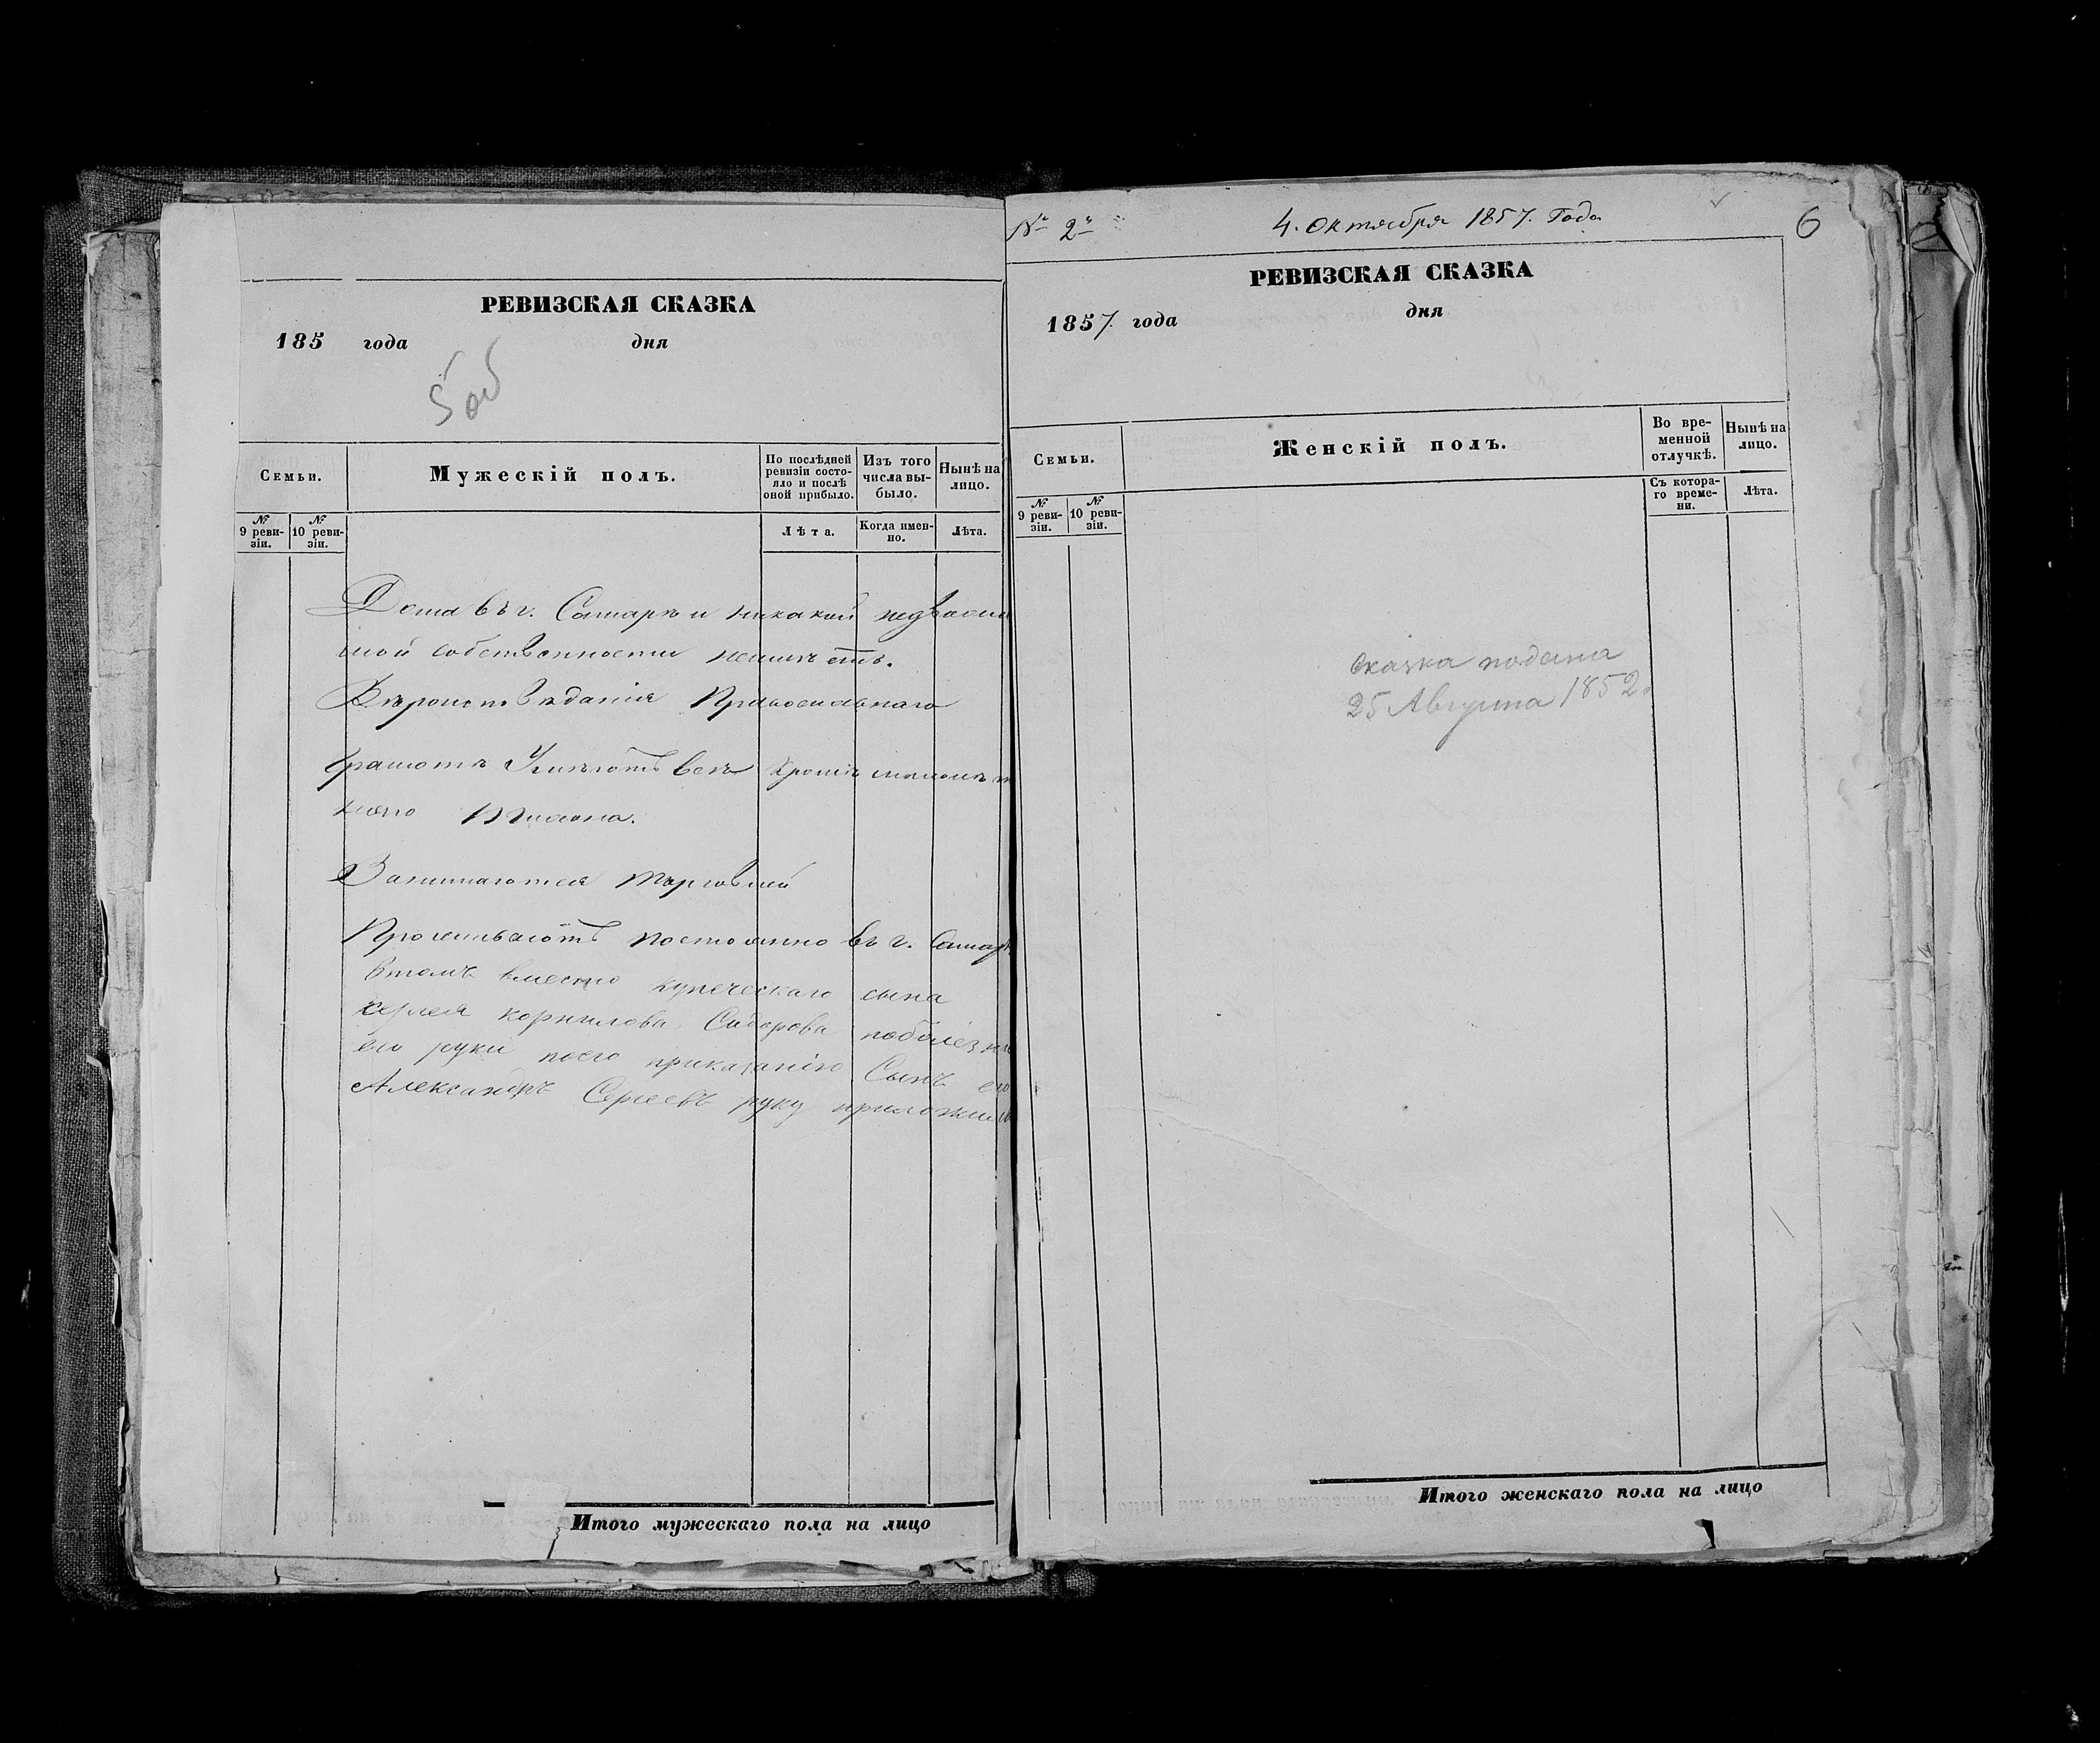 РЕВИЗСКАЯ СКАЗКА
185 года дня
5 об
Семьи.
Мужескій полъ.
По послѣдней ревизіи состояло и послѣ оной прибыло.
Изъ того числа выбыло.
Нынѣ на лицо.
№ 9 ревизіи.
№ 10 ревизіи.
Лѣта.
Когда именно.
Лѣта.
Дома въ г. Самарѣ и никакой недвижи
мой собственности неимѣетъ.
Вѣроисповѣданія Православнаго
Грамотѣ Умѣютъ всѣ кромѣ
Занимаются торговлей
Проживаютъ постоянно въ г. Самарѣ
Втомъ вместо купеческаго сына
Сергея корнилова Сидорова поболезни
его руки поего приказанію Сынъ его
Александръ Сергеевъ руку приложилъ
Итого мужескаго пола на лицо
№ 2й
4. Октября 1857. Года
6
РЕВИЗСКАЯ СКАЗКА
1857. года дня
Семьи.
Женскій полъ.
Во временной отлучкѣ.
Нынѣ на лицо.
№ 9 ревизіи.
№ 10 ревизіи.
Съ котораго времени.
Лѣта.
Сказка подана
25 Августа 1852.
Итого женскаго пола на лицо